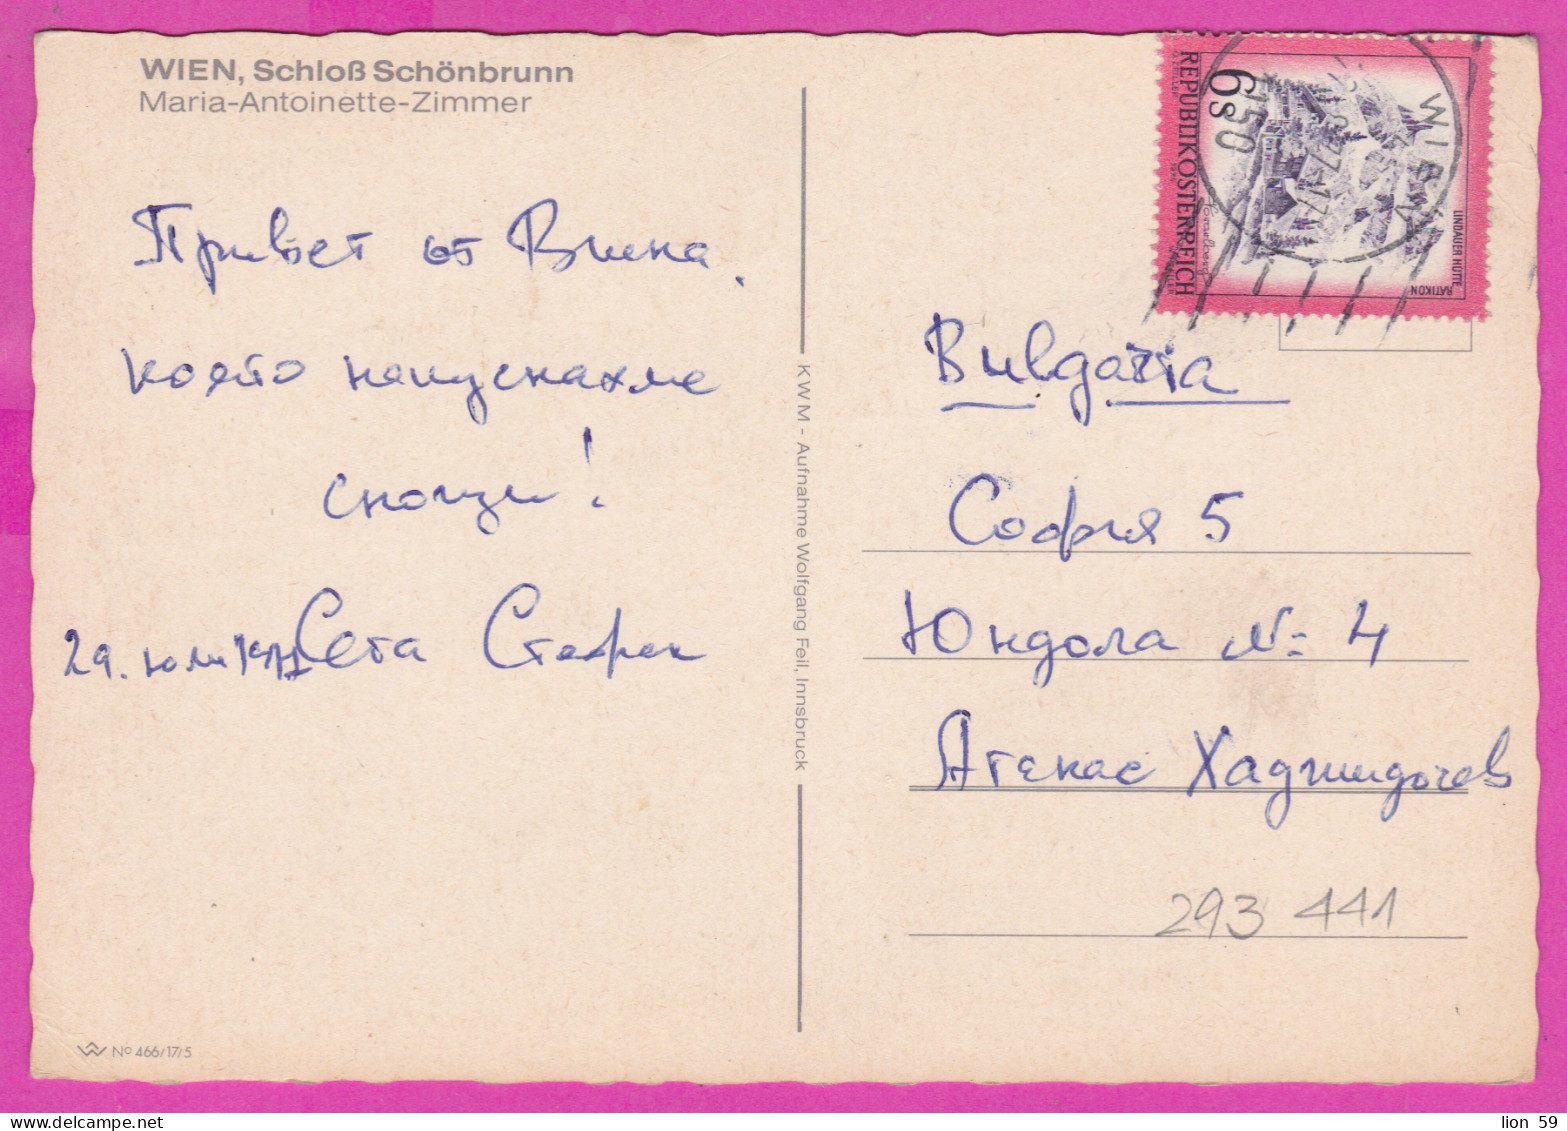 WIEN, Schloß Schönbrunn
Maria-Antoinette-Zimmer
Привет от Виена,
която напускахме
снощи!
29. юли Сета Стефан
N° 466/17/5
KWM - Aufnahme Wolfgang Feil, Innsbruck
REPUBLIK ÖSTERREICH
6s
LINDAUER HÜTTE
RÄTIKON
WIEN
1150
Bulgaria
София 5
Юндола № 4
Атанас Хаджидочев
293 441
lion 59
www.delcampe.net